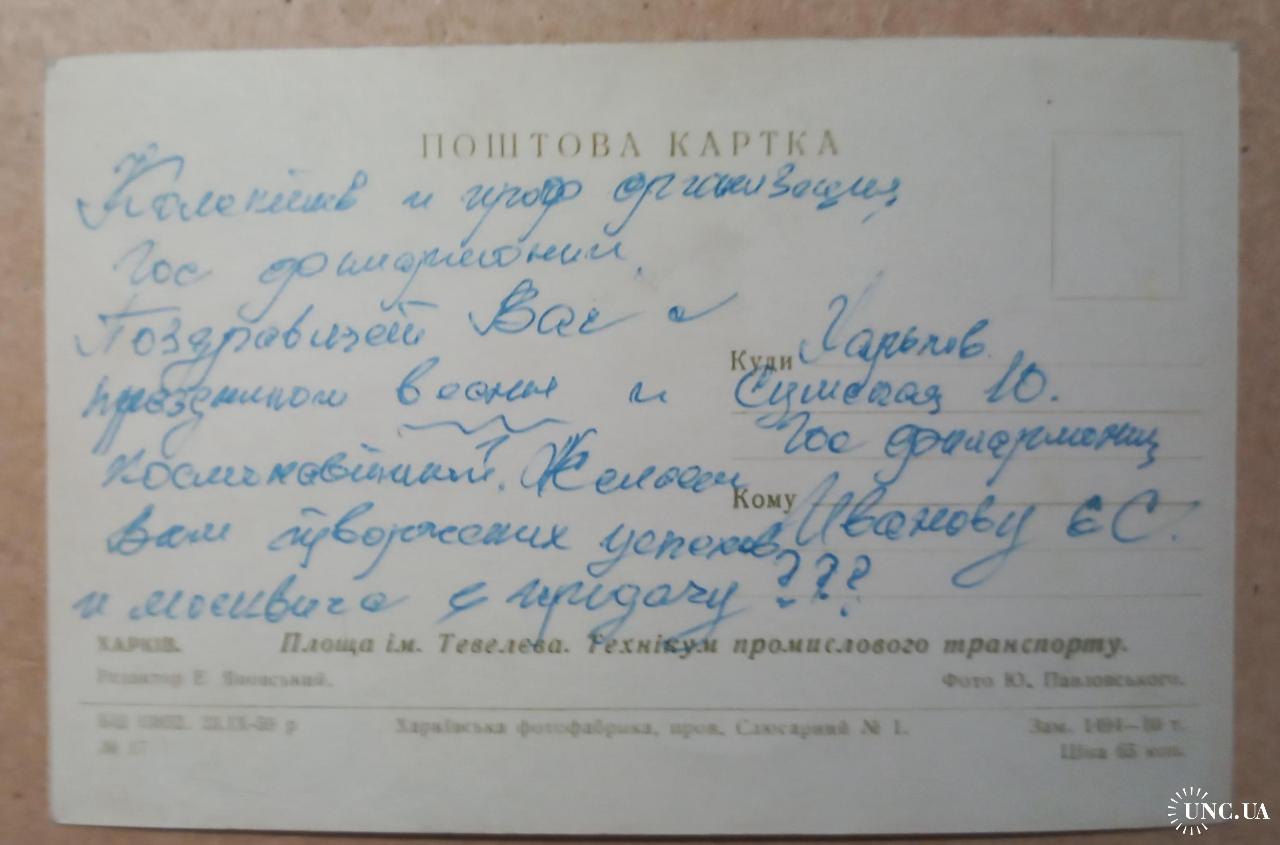 ПОШТОВА КАРТКА
и проф организация
Гос филармонии.
Поздравляем Вас с
праздником весны и
Желаем
Вам творческих успехов
и москвича в придачу ???
Куди Харьков.
Сумская 10.
Гос филармония
Кому Иванову ЄС.
ХАРКІВ. Площа ім. Тевелєва. Технікум промислового транспорту.
Редактор Е. Яновський. Фото Ю. Павловського.
22.IX-59 р Харківська фотофабрика, пров. Слюсарний № 1. Зам. 1494—
Ціна 65 коп.
UNC.UA